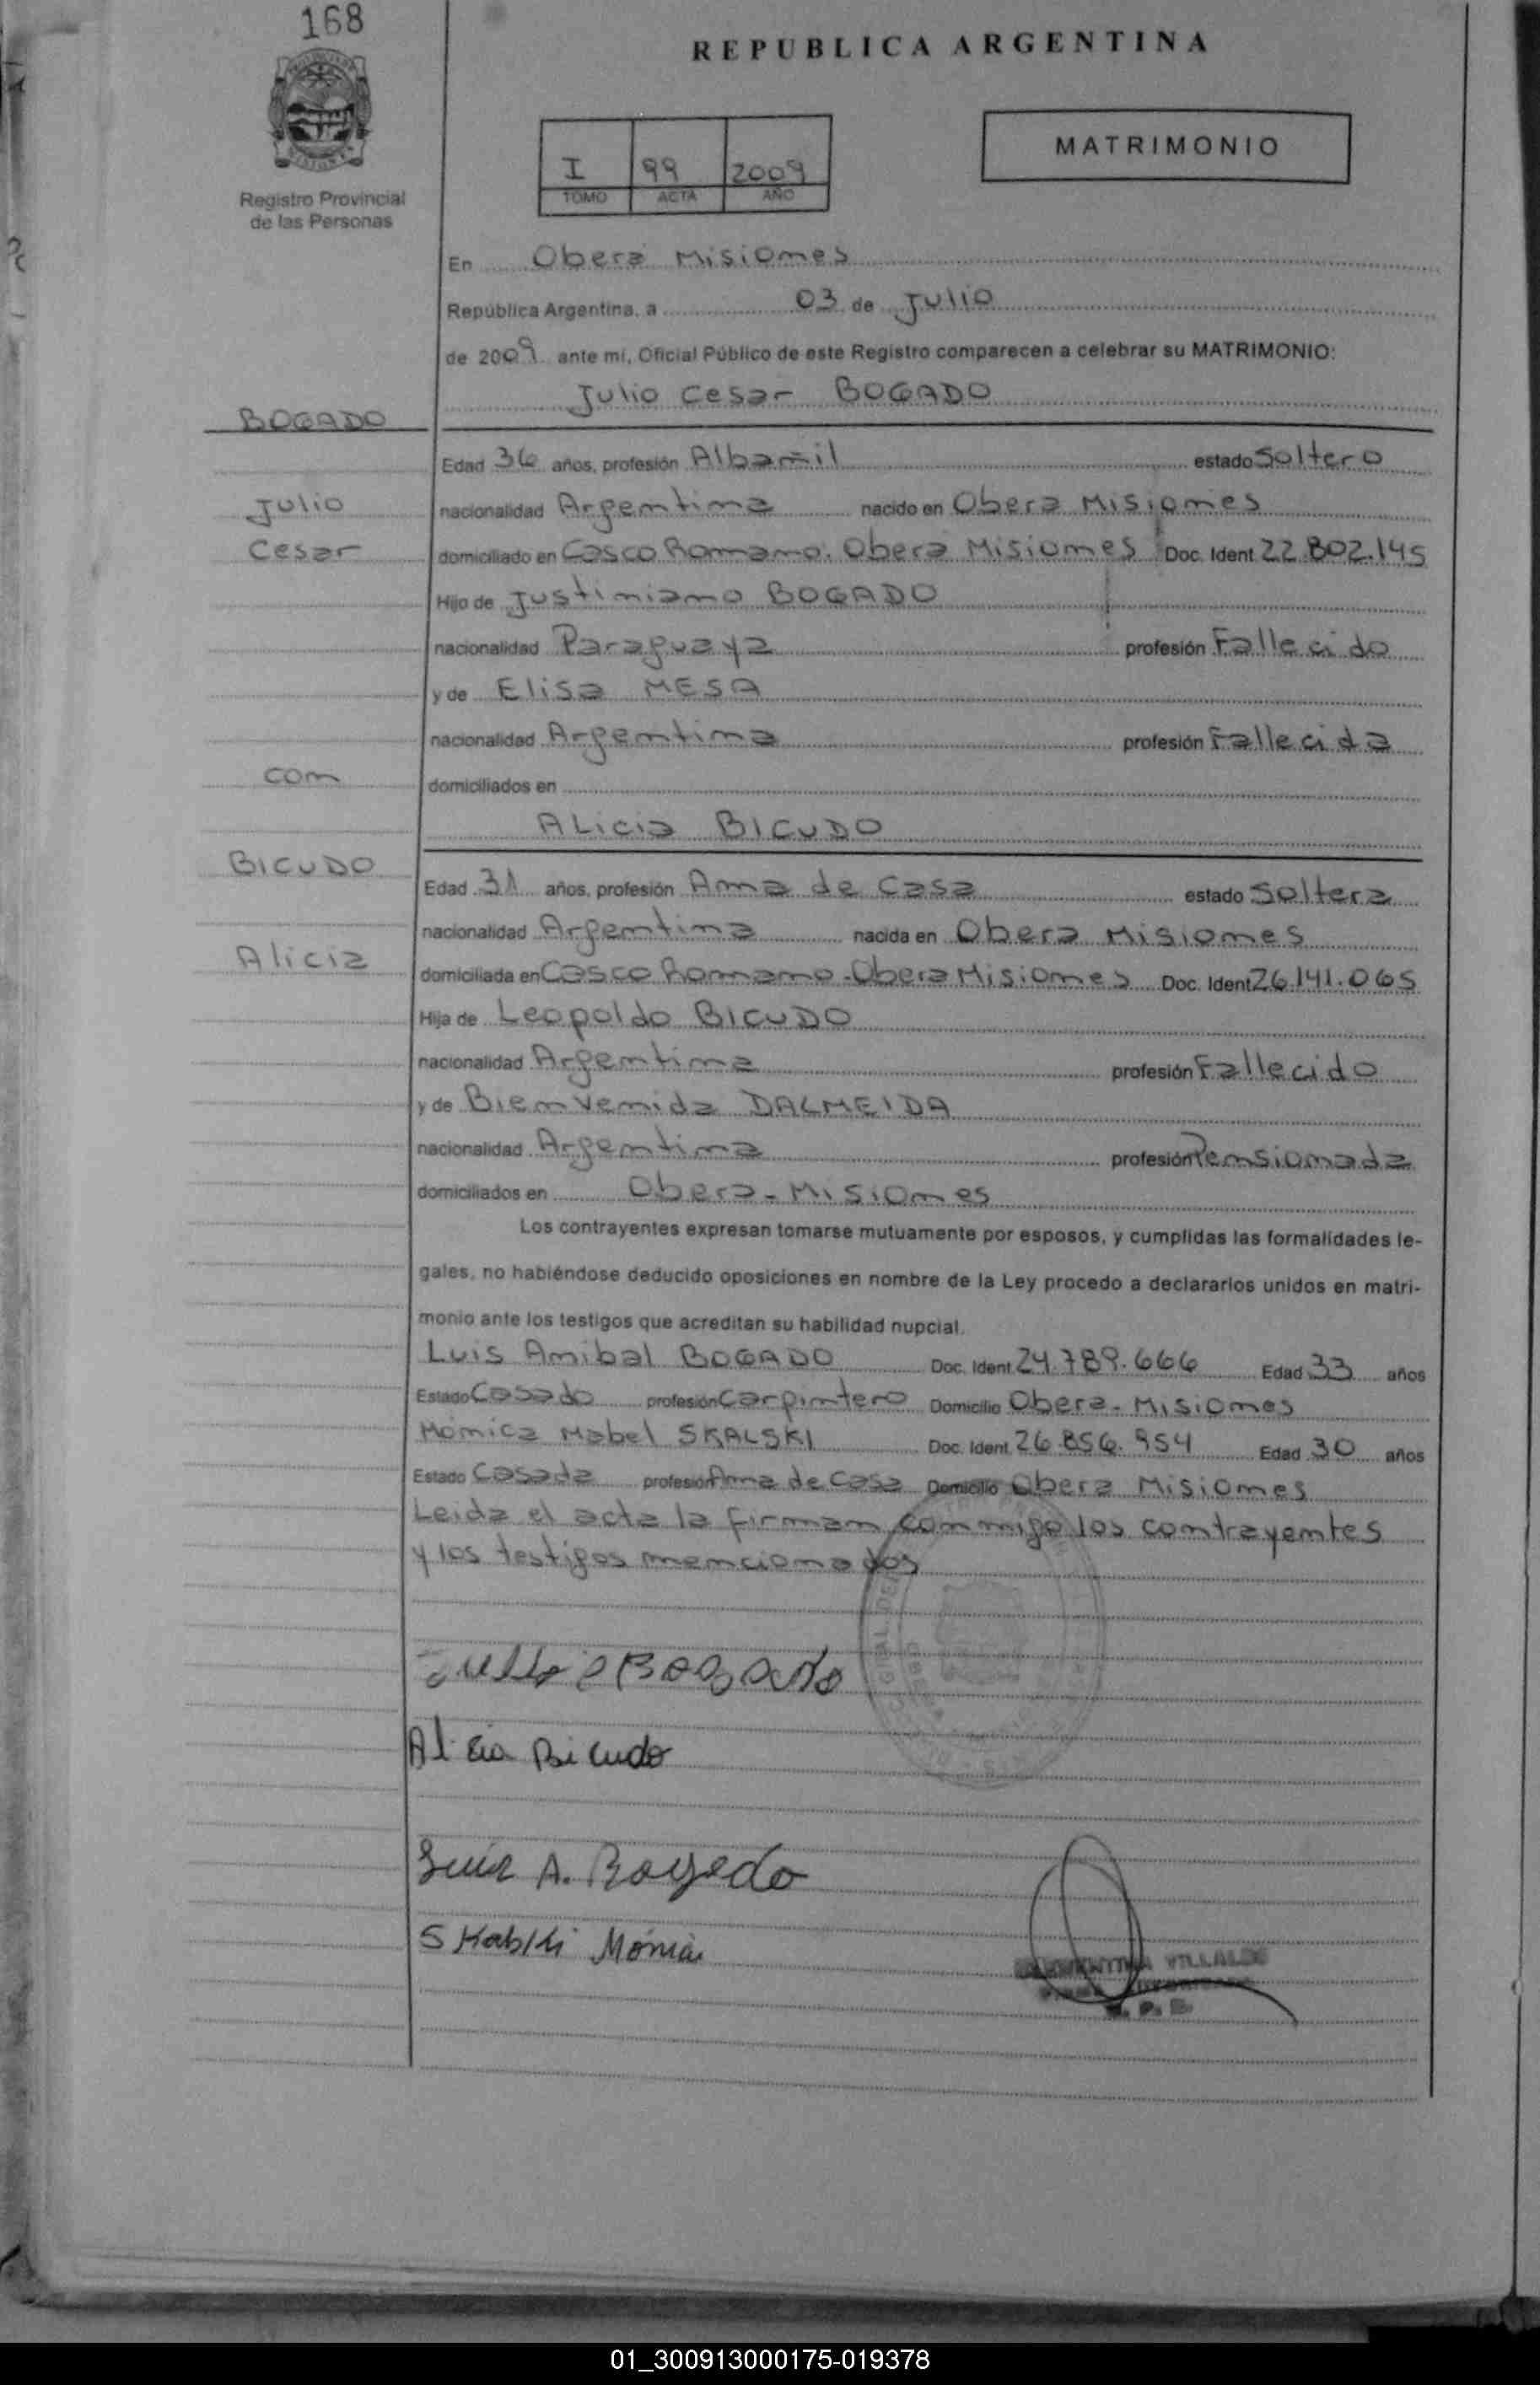 168
REPUBLICA ARGENTINA
MATRIMONIO
I 99 2009
TOMO ACTA AÑO
Registro Provincial
de las Personas
En Obera Misiones
República Argentina, a 03 de Julio
de 2009 ante mí, Oficial Público de este Registro comparecen a celebrar su MATRIMONIO:
Julio Cesar BOGADO
BOGADO
Edad 36 años, profesión Albañil estado Soltero
Julio
nacionalidad Argentina nacido en Obera Misiones
Cesar
domiciliado en Casco Romano. Obera Misiones Doc. Ident 22.802.145
Hijo de Justiniano BOGADO
nacionalidad Paraguaya profesión Fallecido
y de Elisa MESA
nacionalidad Argentina profesión Fallecida
con
domiciliados en
Alicia BICUDO
BICUDO
Edad 31 años, profesión Ama de Casa estado Soltera
nacionalidad Argentina nacida en Obera Misiones
Alicia
domiciliada en Casco Romano - Obera Misiones Doc. Ident 26.141.065
Hija de Leopoldo BICUDO
nacionalidad Argentina profesión Fallecido
y de Bienvenida DALMEIDA
nacionalidad Argentina profesión Pensionada
domiciliados en Obera - Misiones
Los contrayentes expresan tomarse mutuamente por esposos, y cumplidas las formalidades le-
gales, no habiéndose deducido oposiciones en nombre de la Ley procedo a declararlos unidos en matri-
monio ante los testigos que acreditan su habilidad nupcial.
Luis Anibal BOGADO Doc. Ident. 24.789.666 Edad 33 años
Estado Casado profesión Carpintero Domicilio Obera - Misiones
Mónica Mabel SKALSKI Doc. Ident. 26.856.954 Edad 30 años
Estado Casada profesión Ama de Casa Domicilio Obera Misiones
Leida el acta la firman conmigo los contrayentes
y los testigos mencionados
Julio c Bogado
Alicia Bicudo
Luis A. Bogado
Skalski Mónica
VILLALBA
01_300913000175-019378